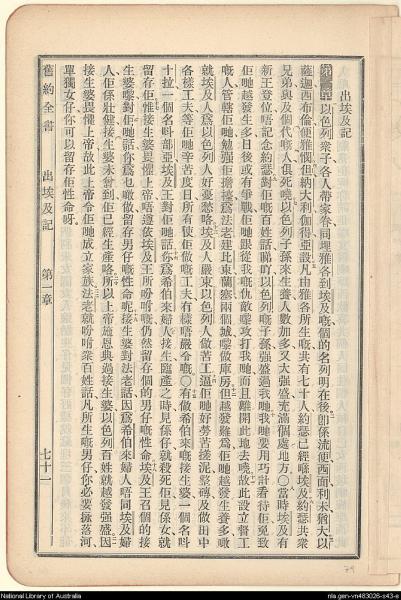 出埃及記
第一章 以色列衆子各人帶家眷同埋雅各到埃及嘅個的名列明在後卽係流便西面利未猶大以
薩迦西布倫便雅憫但納大利伽得亞設凡由雅各所生嘅共有七十人約瑟已經喺埃及約瑟共衆
兄弟與及個代嘅人俱死曉以色列子孫來生養人數加多又大强盛充滿個處地方〇當時埃及有
新王登位唔記念約瑟對佢嘅百姓話睇吓以色列嘅子孫强盛過我哋我哋要用巧計看待佢免致
佢哋越發生多日後或有爭戰佢哋跟從我哋嘅仇敵嚟攻打我哋而且離開此地去曉故此設立督工
嘅人管轄佢哋勉强佢擔擡爲法老建比東蘭塞兩個城嚟做庫房但越發難爲佢哋越發生養多嚟
就埃及人爲以色列人好憂愁咯埃及人嚴束以色列人做苦工逼佢哋好勞苦搓泥整磚及做田中
各樣工夫等佢哋辛苦度日所有使佢做嘅工夫冇樣唔嚴令嘅〇有做希伯來嘅接生婆一個名呌
十拉一個名呌部亞埃及王對佢哋話你爲希伯來婦人接生臨產之時見係仔就殺死佢見係女就
留存佢惟接生婆畏懼上帝唔遵依埃及王所吩咐嘅仍然留存個的男仔嘅性命埃及王召個的接
生婆嚟對佢哋話你爲乜噉做留存男仔嘅性命呢接生婆對法老話因爲希伯來婦人唔同埃及婦
人佢係壯健接生婆未曾到佢已經生產咯所以上帝施恩典過接生婆以色列百姓就越發强盛因
接生婆畏懼上帝故此上帝令佢哋成立家族法老就吩咐衆百姓話凡所生嘅男仔你必要掉落河
單獨女仔你可以留存佢性命呀
舊約全書 出埃及記 第一章 七十一
79
National Library of Australia
nla.gen-vn483026-s43-e